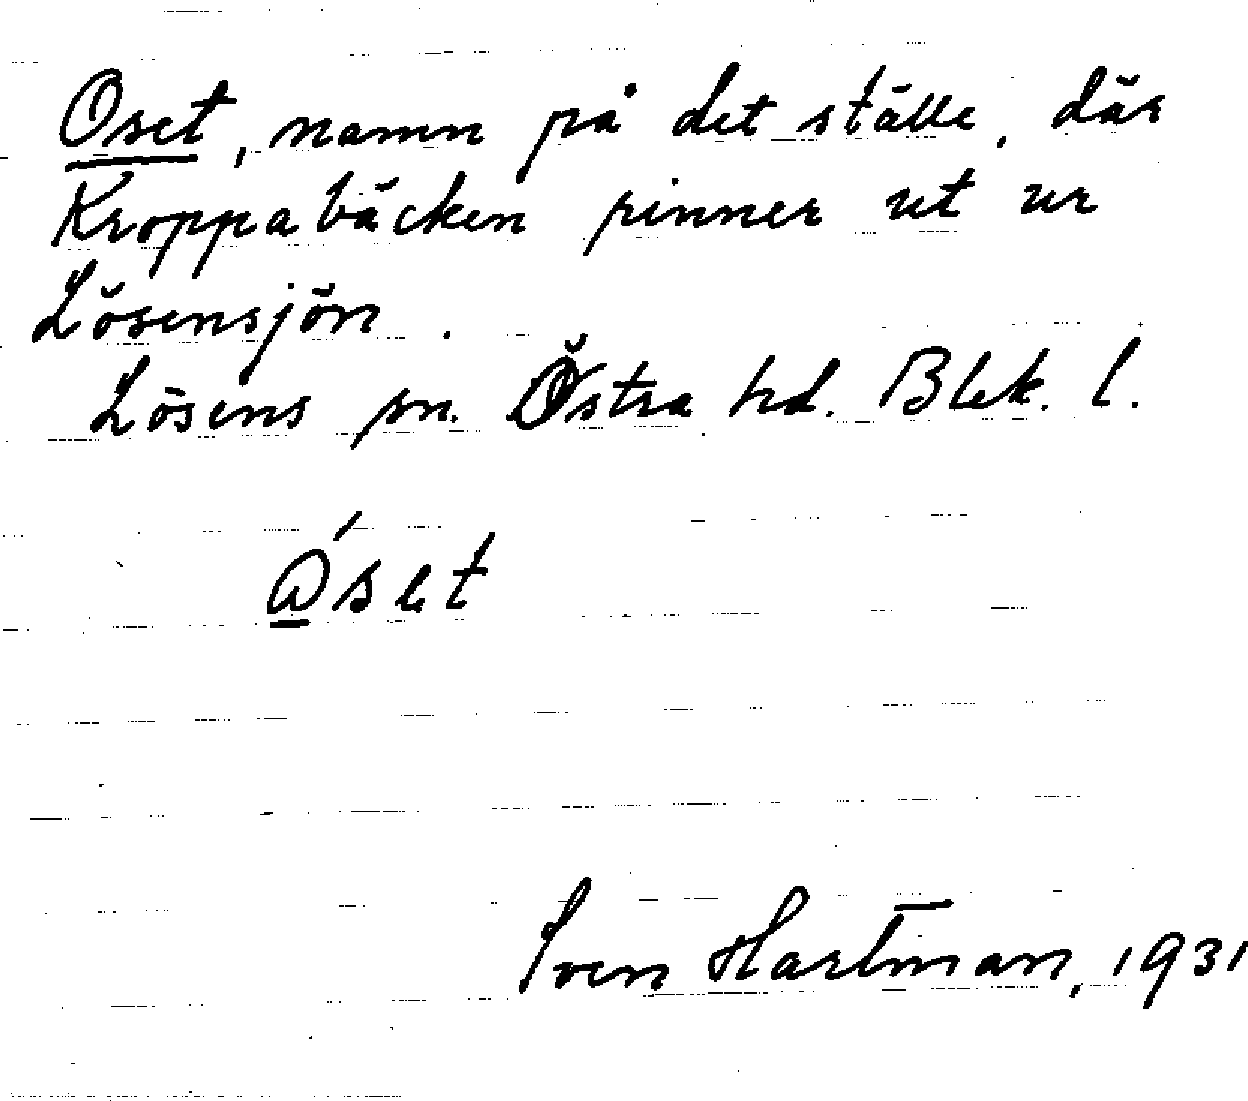 Oset, namn på det ställe, där
Kroppabäcken rinner ut ur
Lösensjön.
Lösens sn. Östra hd. Blek. l.
ó̱set
Sven Hartman, 1931